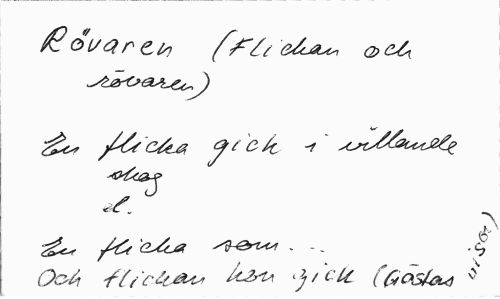 Rövaren (Flickan och
rövaren)
En flicka gick i villande
skog
el.
En flicka som...
Och flickan hon gick (Göstas visor)